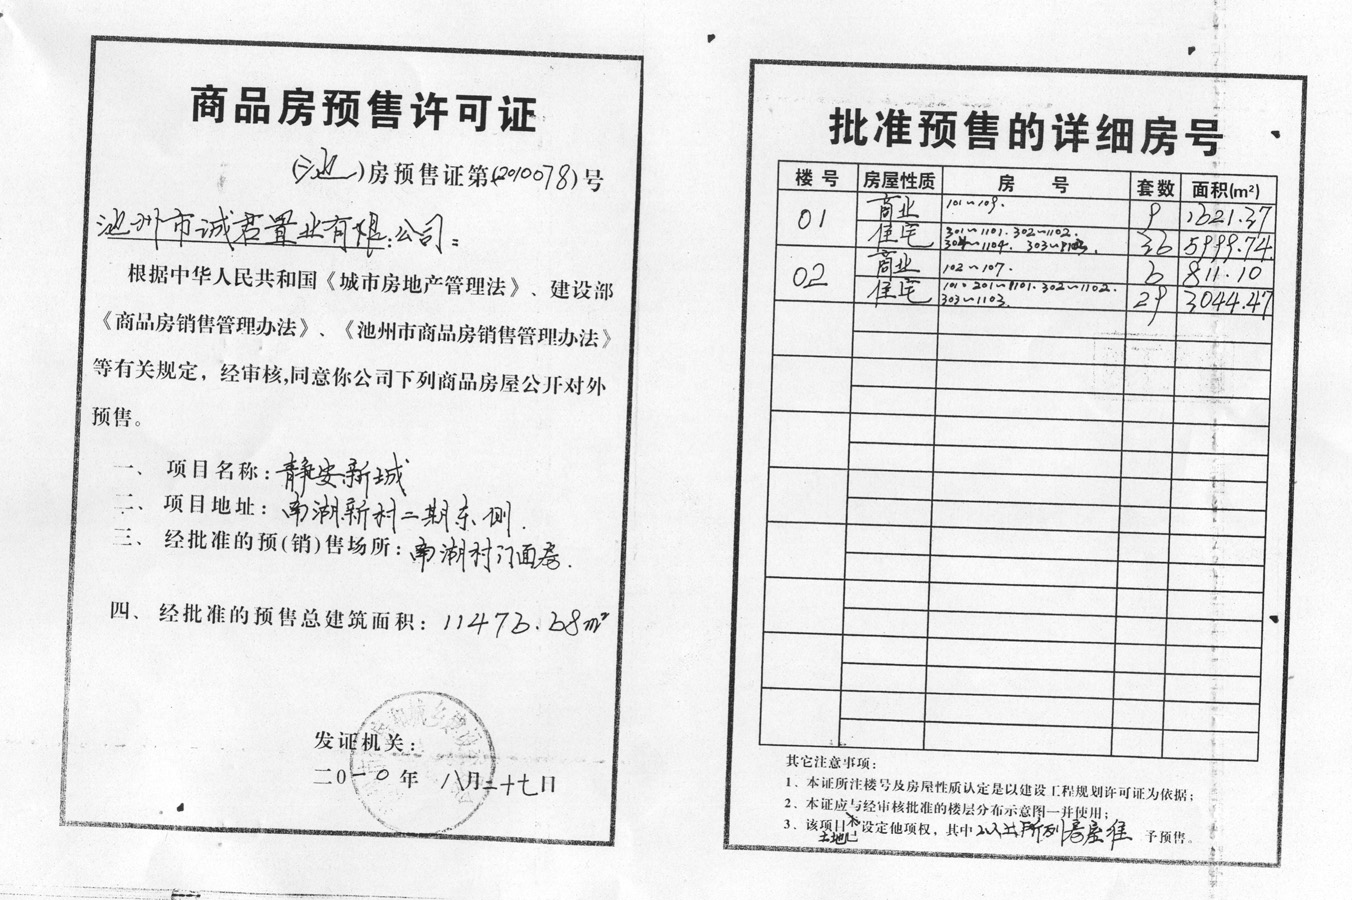 商品房预售许可证
(池)房预售证第(2010078)号
池州市诚君置业有限公司：
根据中华人民共和国《城市房地产管理法》、建设部
《商品房销售管理办法》、《池州市商品房销售管理办法》
等有关规定，经审核,同意你公司下列商品房屋公开对外
预售。
一、项目名称:静安新城
二、项目地址:南湖新村二期东侧.
三、经批准的预(销)售场所:南湖村门面房.
四、经批准的预售总建筑面积:11476.68m²
发证机关:
二0一0年八月二十七日
批准预售的详细房号
楼号 房屋性质 房号 套数 面积(m²)
01 商业 101~109. 9 1621.37
住宅 301~1101. 302~1102. 36 5999.74
02 商业 102~107. 6 811.10
住宅 101、201~1101. 302~1102. 29 3044.47
303~1103.
其它注意事项:
1、本证所注楼号及房屋性质认定是以建设工程规划许可证为依据;
2、本证应与经审核批准的楼层分布示意图一并使用;
3、该项目 设定他项权，其中以上所列房屋准 予预售。
土地已